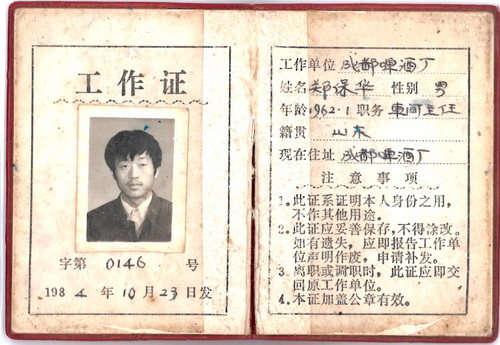 工作证
字第 0146 号
1984年10月23日发
工作单位 成都啤酒厂
姓名 郑保华 性别 男
年龄 1962.1 职务 车间主任
籍贯 山东
现在住址 成都啤酒厂
注意事项
1.此证系证明本人身份之用,
不作其他用途。
2.此证应妥善保存,不得涂改。
如有遗失,应即报告工作单
位声明作废,申请补发。
3.离职或调职时,此证应即交
回原工作单位。
4.本证加盖公章有效。